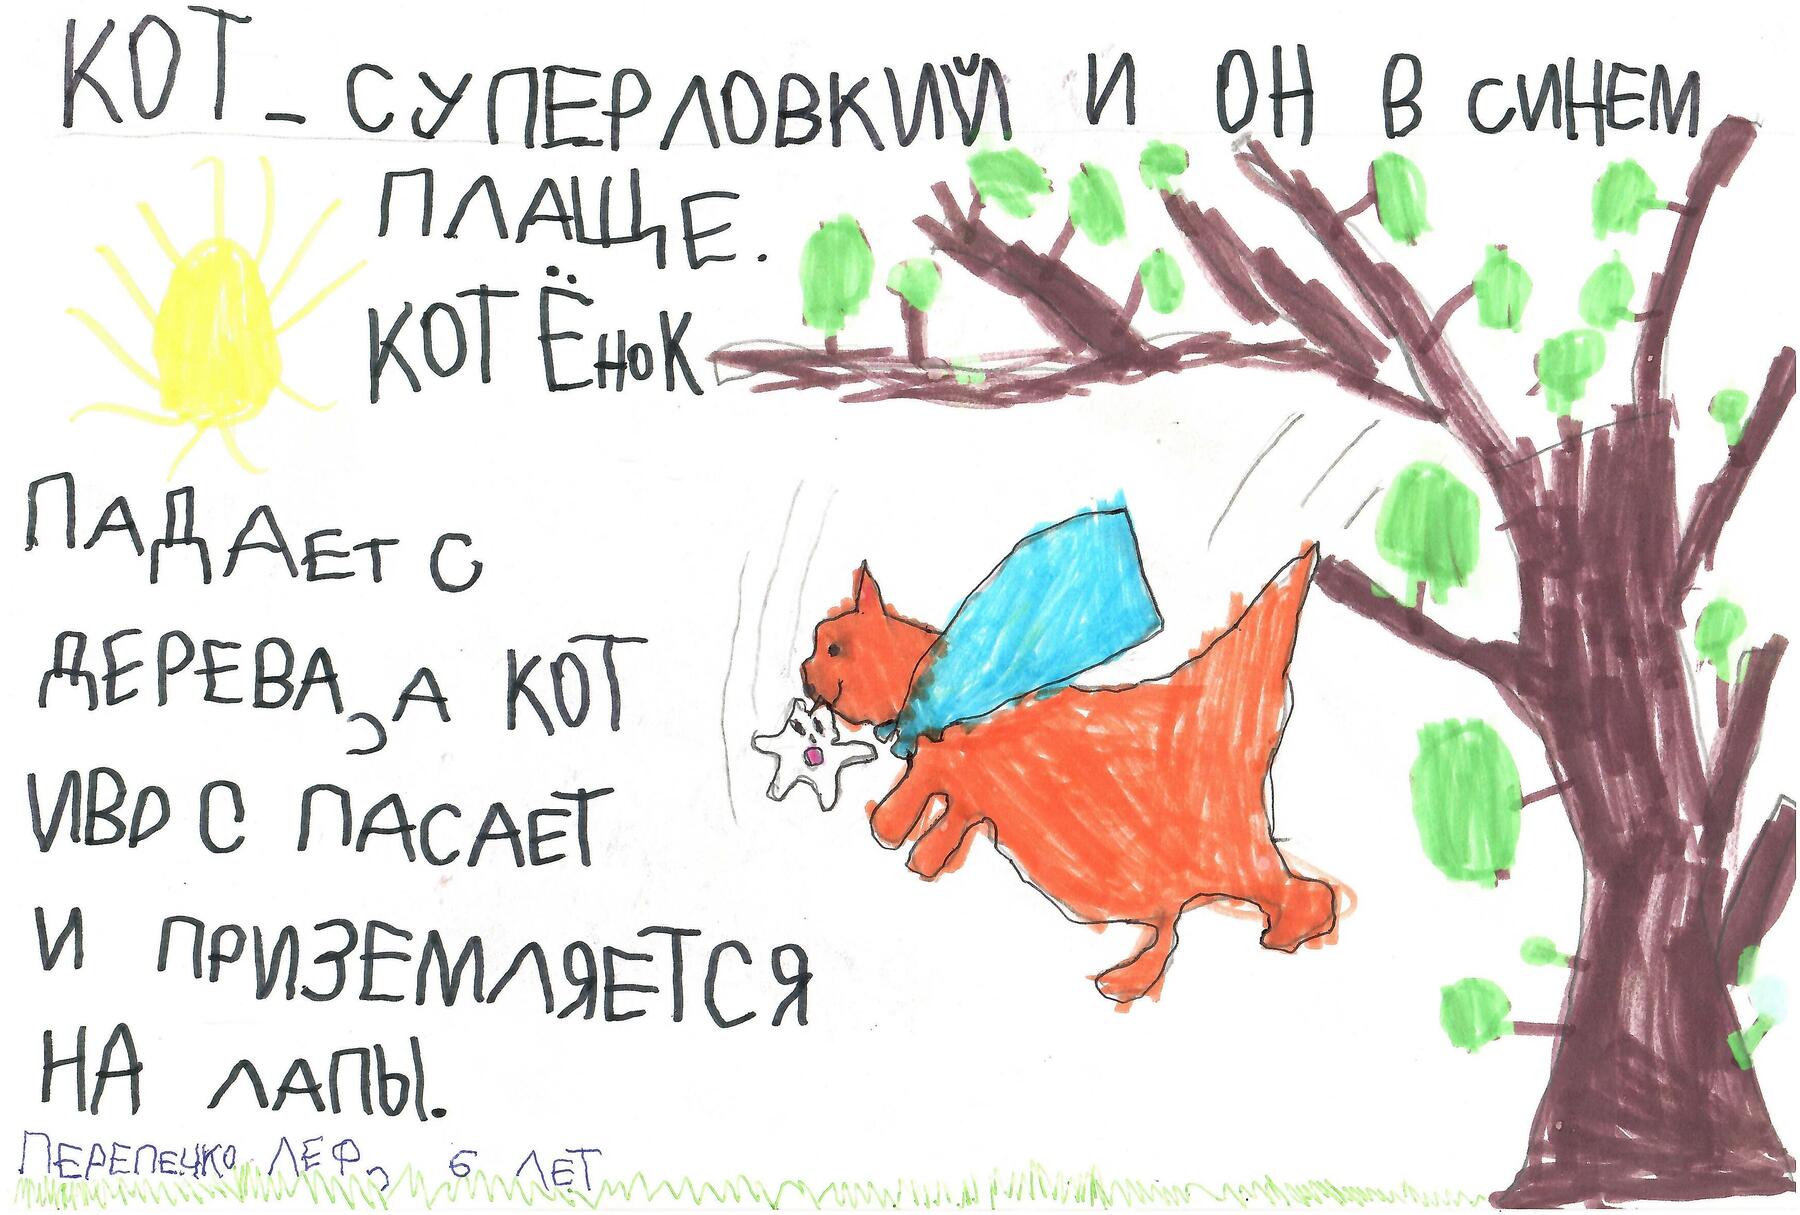 КОТ – СУПЕРЛОВКИЙ И ОН В СИНЕМ
ПЛАЩЕ.
КОТЁНОК
ПАДАЕТ С
ДЕРЕВА, А КОТ
ИВО С ПАСАЕТ
И ПРИЗЕМЛЯЕТСЯ
НА ЛАПЫ.
ПЕРЕПЕЧКО ЛЕФ, 6 ЛЕТ